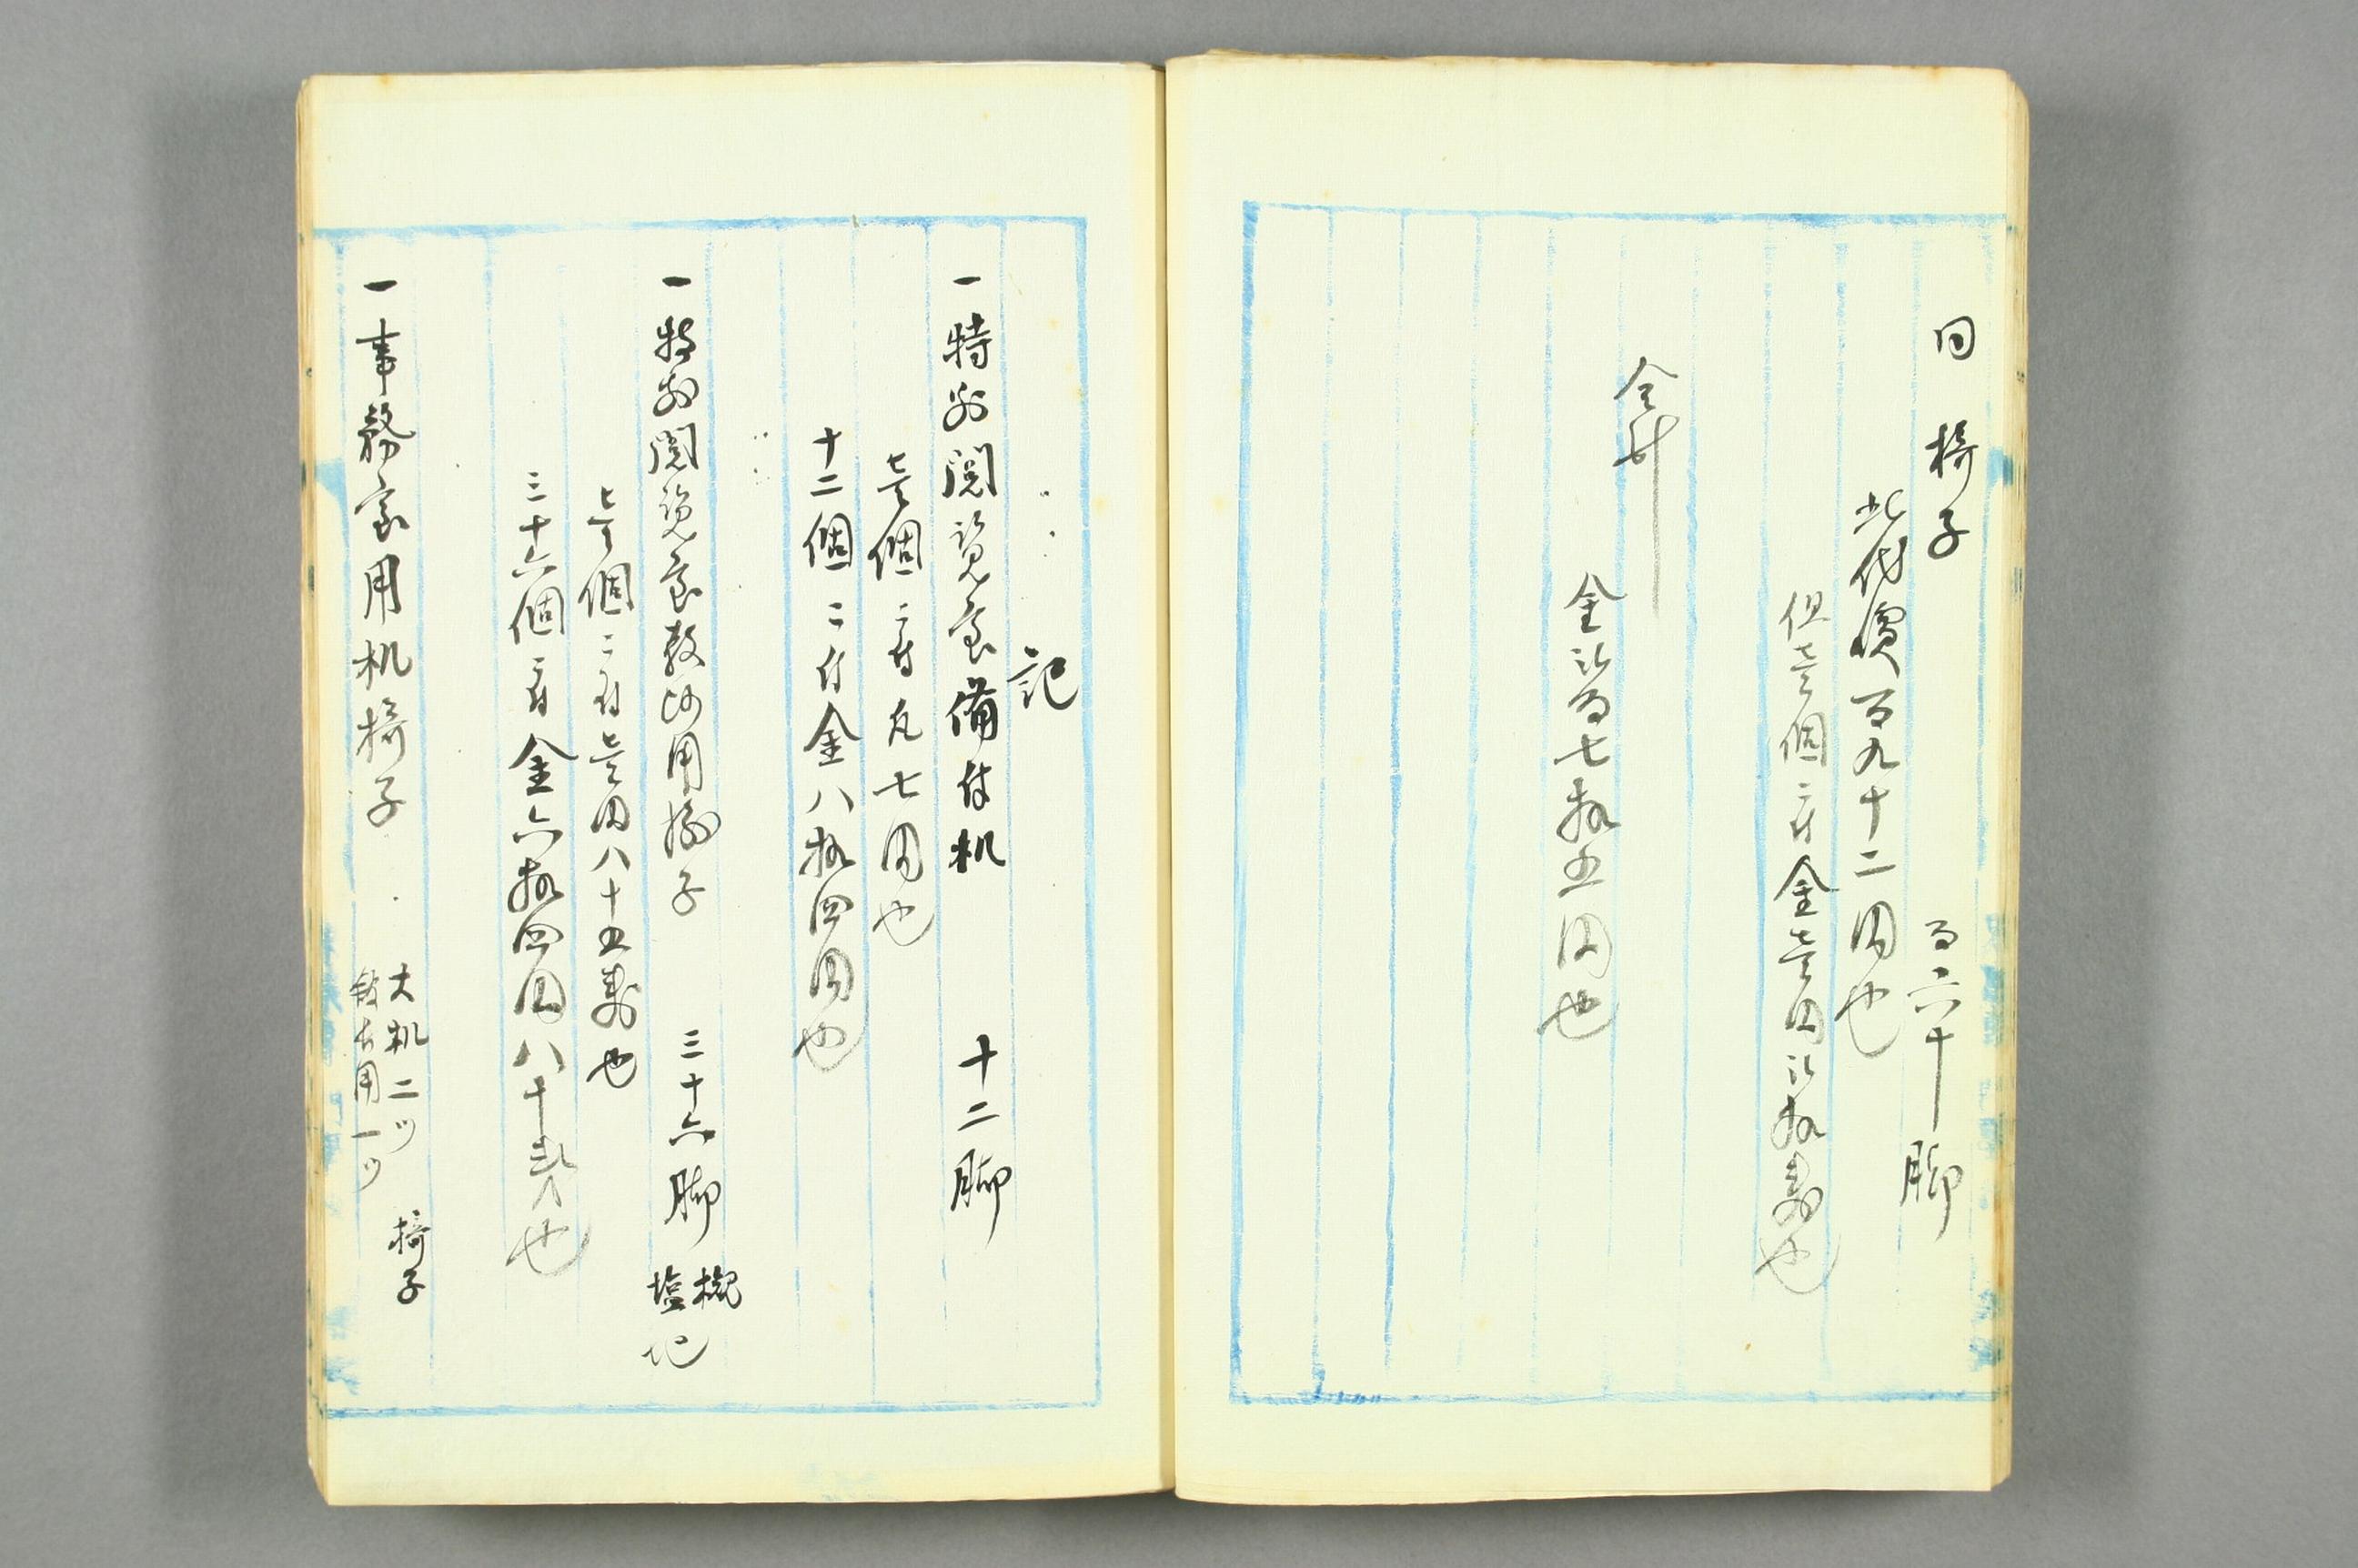 同 椅子 百六十脚
此代價百九十二円也
但壱個ニ付金壱円弐拾銭也
合計
金弐百七拾五円也
記
一特別閲覧室備付机 十二脚
壱個ニ付凡七円也
十二個ニ付金八拾四円也
一特別閲覧室教師用椅子 三十六脚
塩地
壱個ニ付壱円八十五銭也
三十六個ニ付金六拾四円八十銭也
一事務室用机椅子
大机二ツ 椅子
用一ツ